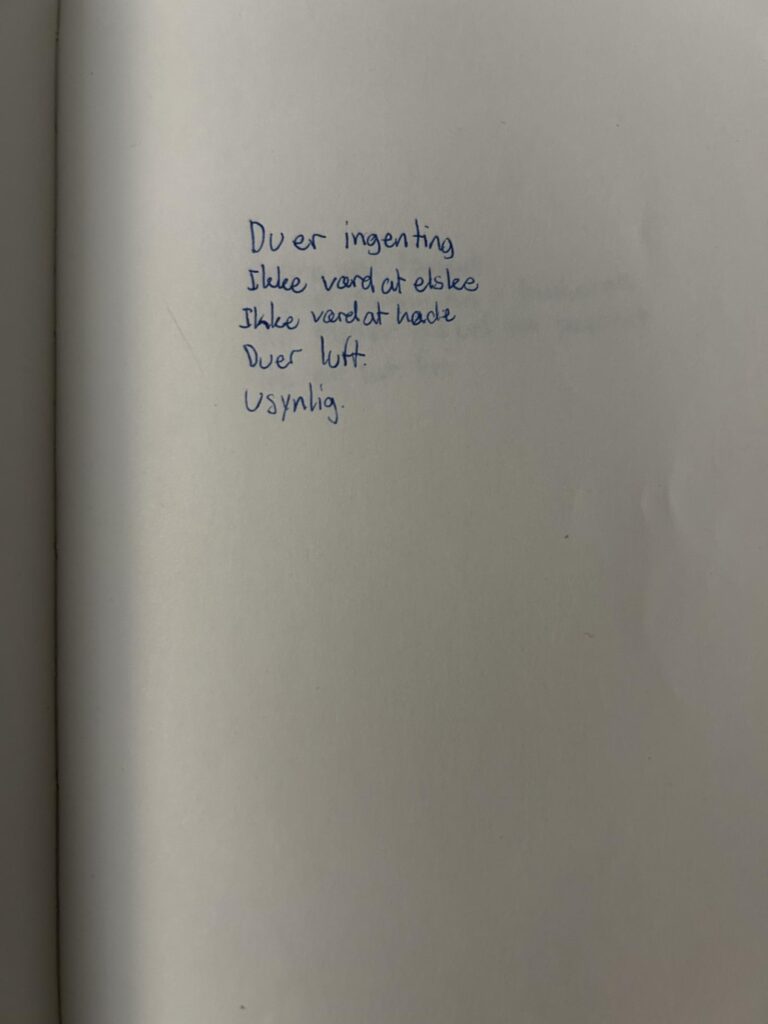 Du er ingenting
Ikke værd at elske
Ikke værd at hade
Du er luft.
Usynlig.